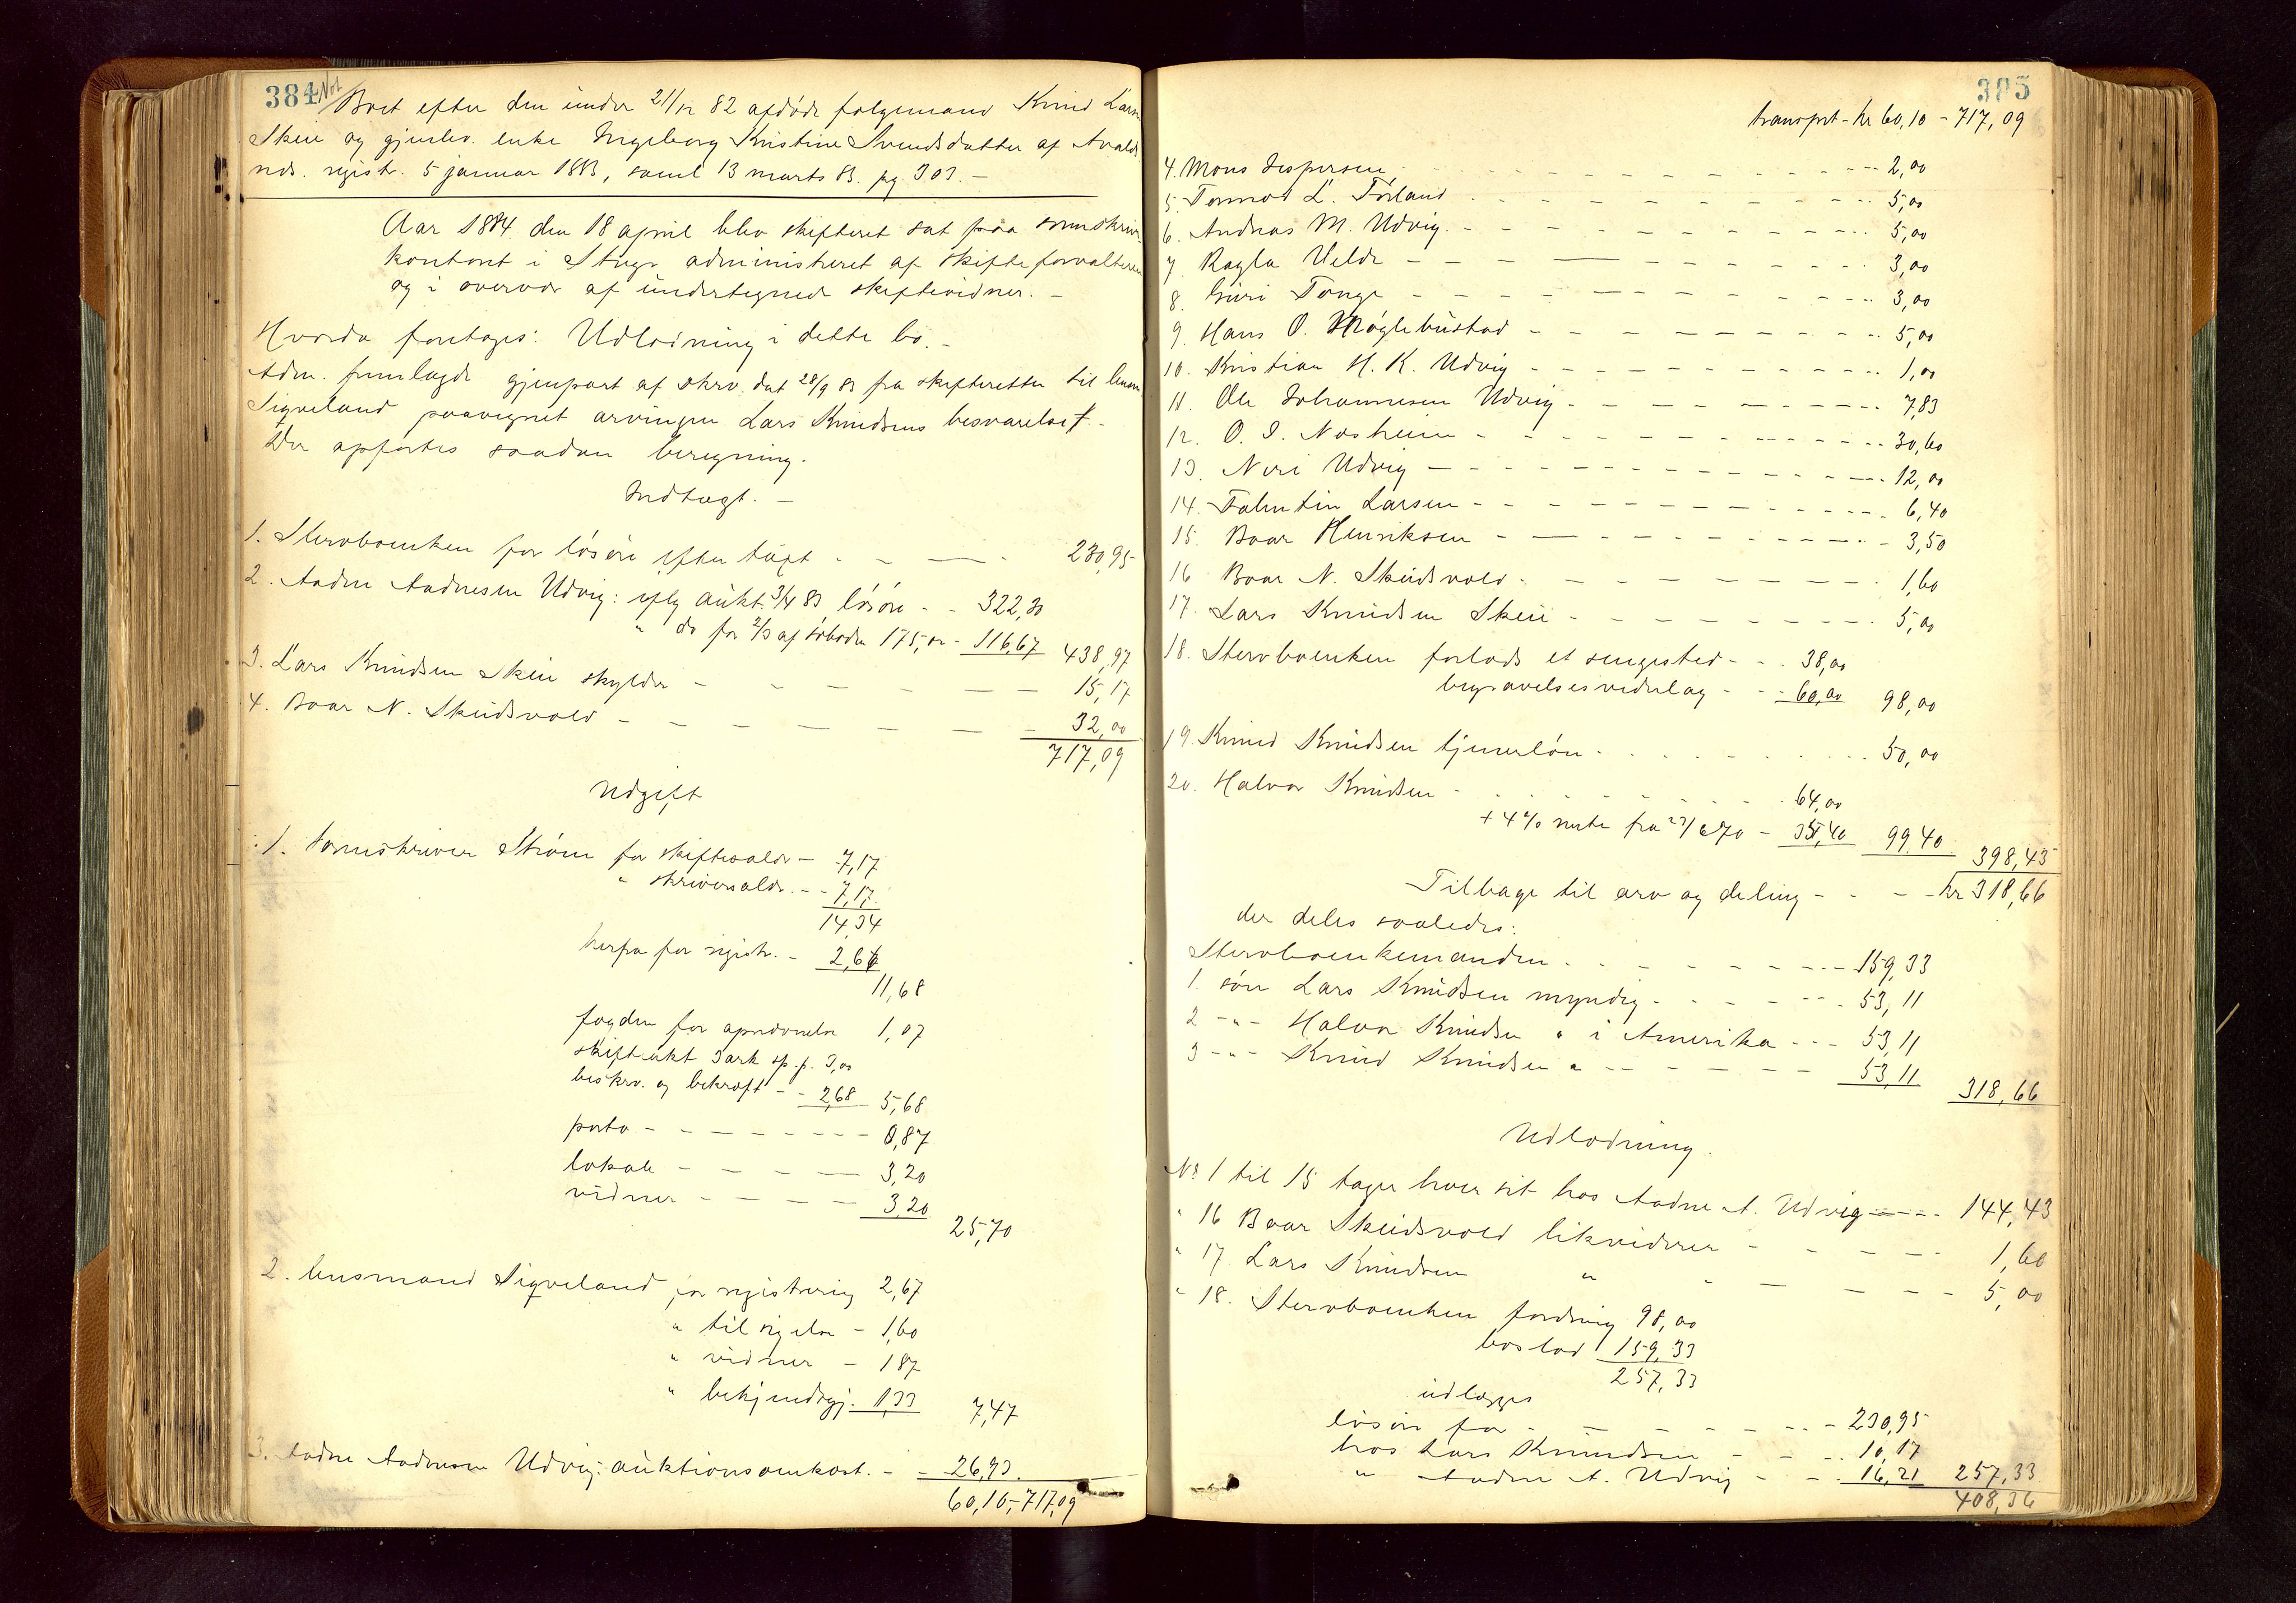 384 Not
Boet efter den under 21/12 82 afdøde følgemand Knud Larsen
Skeie og gjenlev. enke Ingeborg Kristine Svendsdatter af Avalds
nds. registr. 5 januar 1883, saml 13 marts 83. pg 303. –
Aar 1884 den 18 april blev skifteret sat paa sornskriver
kontoret i Stugr administreret af skifteforvalteren
og i overvær af undertegnede skiftevidner. –
Hvorda foretoges: Udlodning i dette bo. –
Adm. fremlagde gjenpart af skrv. dat 28/9 83 fra skifteretten til lensm
Sigveland paategnet arvingen Lars Knudsens besvarelse. –
Der opførtes saadan beregning.
Indtægt. –
1. Stervboenken for løsøre efter taxt - - — - 230,95
2. Aadne Aadnesen Udvig: iflg aukt. 3/4 83 løsøre - - 322,30
" do for 2/3 af søboden 175,00 - 116,67 438,97
3. Lars Knudsen Skeie skylder - - - - - - — 15,17
4. Baar N. Skeidsvold - - - - - - - 32,00
717,09
Udgift
1. sornskriver Strøm for skiftesalær - 7,17
" skriversalær. - - 7,17
14,34
herfra for registr. - 2,66
11,68
fogden for apnævnelse 1,07
skifteakt 3 ark sp. p. 3,00
beskrv. og bekræft - - 2,68 5,68
porto - - - - - - - - 0,87
lokale - - - — 3,20
vidner - - - - - 3,20
25,70
2. lensmand Sigveland for registrering 2,67
" tilsigelse - 1,60
" vidner - 187
" bekjendtgj. 1,33 7,47
3. Aadne Aadnesen Udvig: auktionsomkost. - - 26,93
60,10 - 717,09
385
transport - kr 60,10 - 717,09
4. Mons Jespersen, - - - - - - - - - 2,00
5. Tormod L. Førland - - - - - - - - 5,00
6. Andreas M. Udvig. - - - - - - - - 5,00
7. Ragla Velde - - - - - - - - 3,00
8. Guri Tange - - - - - - - - 3,00
9. Hans O. Møglebustad - - - - - - - - 5,00
10. Kristian H. K. Udvig - - - - - - - - 1,00
11. Ole Johannesen Udvig - - - - - - - - 7,83
12. O. I. Nesheim - - - - - - - - 30,60
13. Neri Udvig - - - - - - - - 12,00
14. Falentin Larsen - - - - - - - - 6,40
15. Baar Henriksen - - - - - - - - 3,50
16 Baar N. Skeidsvold - - - - - - - - 1,60
17. Lars Knudsen Skeie - - - - - - - - 5,00
18. Stervboenken forlods et sengested - - - 38,00
begravelsesvederlag - - - 60,00 98,00
19. Knud Knudsen tjenerløn - - - - - - 50,00
20. Halvor Knudsen - - - - - - - 64,00
+ 4% rente fra 23/6 70 - 35,40 99,40 398,43
Tilbage til arv og deling - - - - kr 318,66
der deles saaledes:
Stervboenkemanden - - - - - - - - 159,33
1. søn Lars Knudsen myndig - - - - - - - 53,11
2 - " - Halvor Knudsen " i Amerika - - - 53,11
3 - " - Knud Knudsen " - - - - - - 53,11
318,66
Udlodning.
No 1 til 15 tager hver sit hos Aadne A. Udvig - - - 144,43
" 16 Baar Skeidsvold likviderer - - - - - 1,60
" 17 Lars Knudsen " - - - - - 5,00
" 18. Stervboenken fordring 98,00
boslod 159,33
257,33
udlægges
løsøre for - - - - - - - 230,95
hos Lars Knudsen - - - 10,17
" Aadne A. Udvig - - - 16,21 257,33
408,36